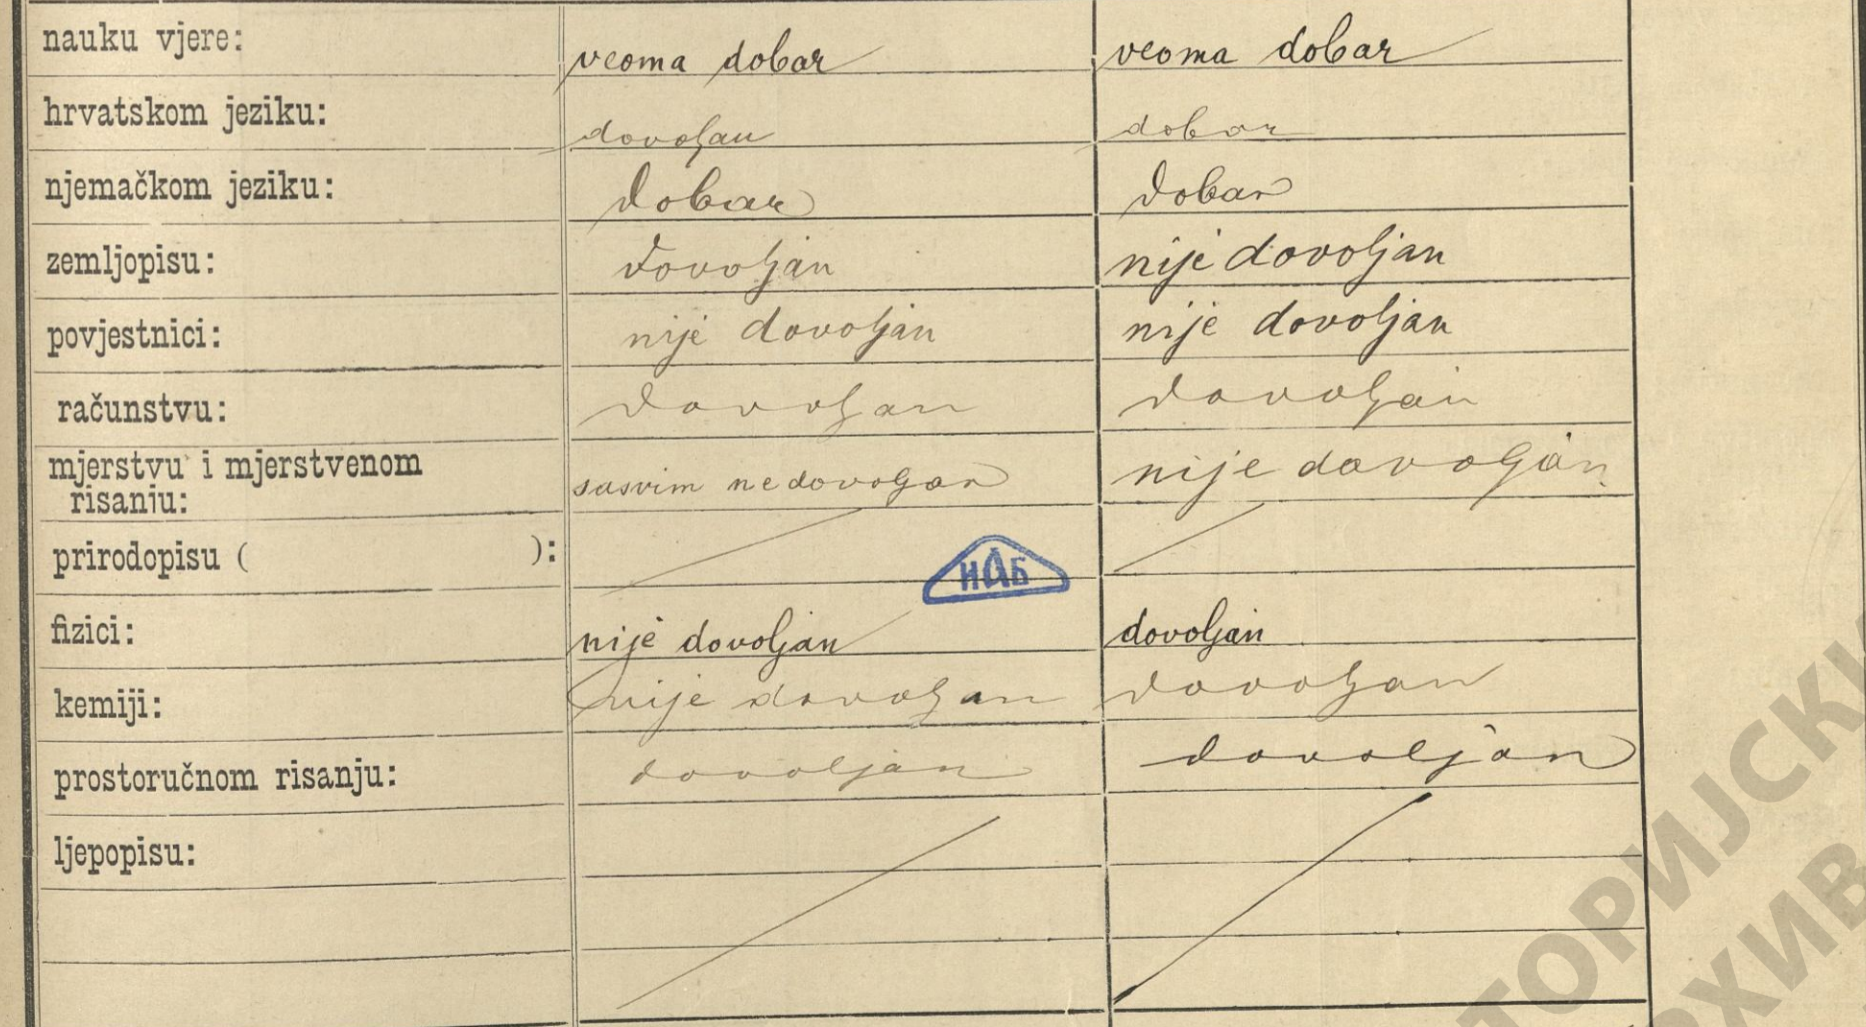 nauku vjere: veoma dobar veoma dobar
hrvatskom jeziku: dovoljan dobar
njemačkom jeziku: dobar dobar
zemljopisu: dovoljan nije dovoljan
povjestnici: nije dovoljan nije dovoljan
računstvu: dovoljan dovoljan
mjerstvu i mjerstvenom
risanju: sasvim nedovoljan nije dovoljan
prirodopisu ( ):
ИАБ
fizici: nije dovoljan dovoljan
kemiji: nije dovoljan dovoljan
prostoručnom risanju: dovoljan dovoljan
ljepopisu:
ТОРИЈСКИ
РХИВ